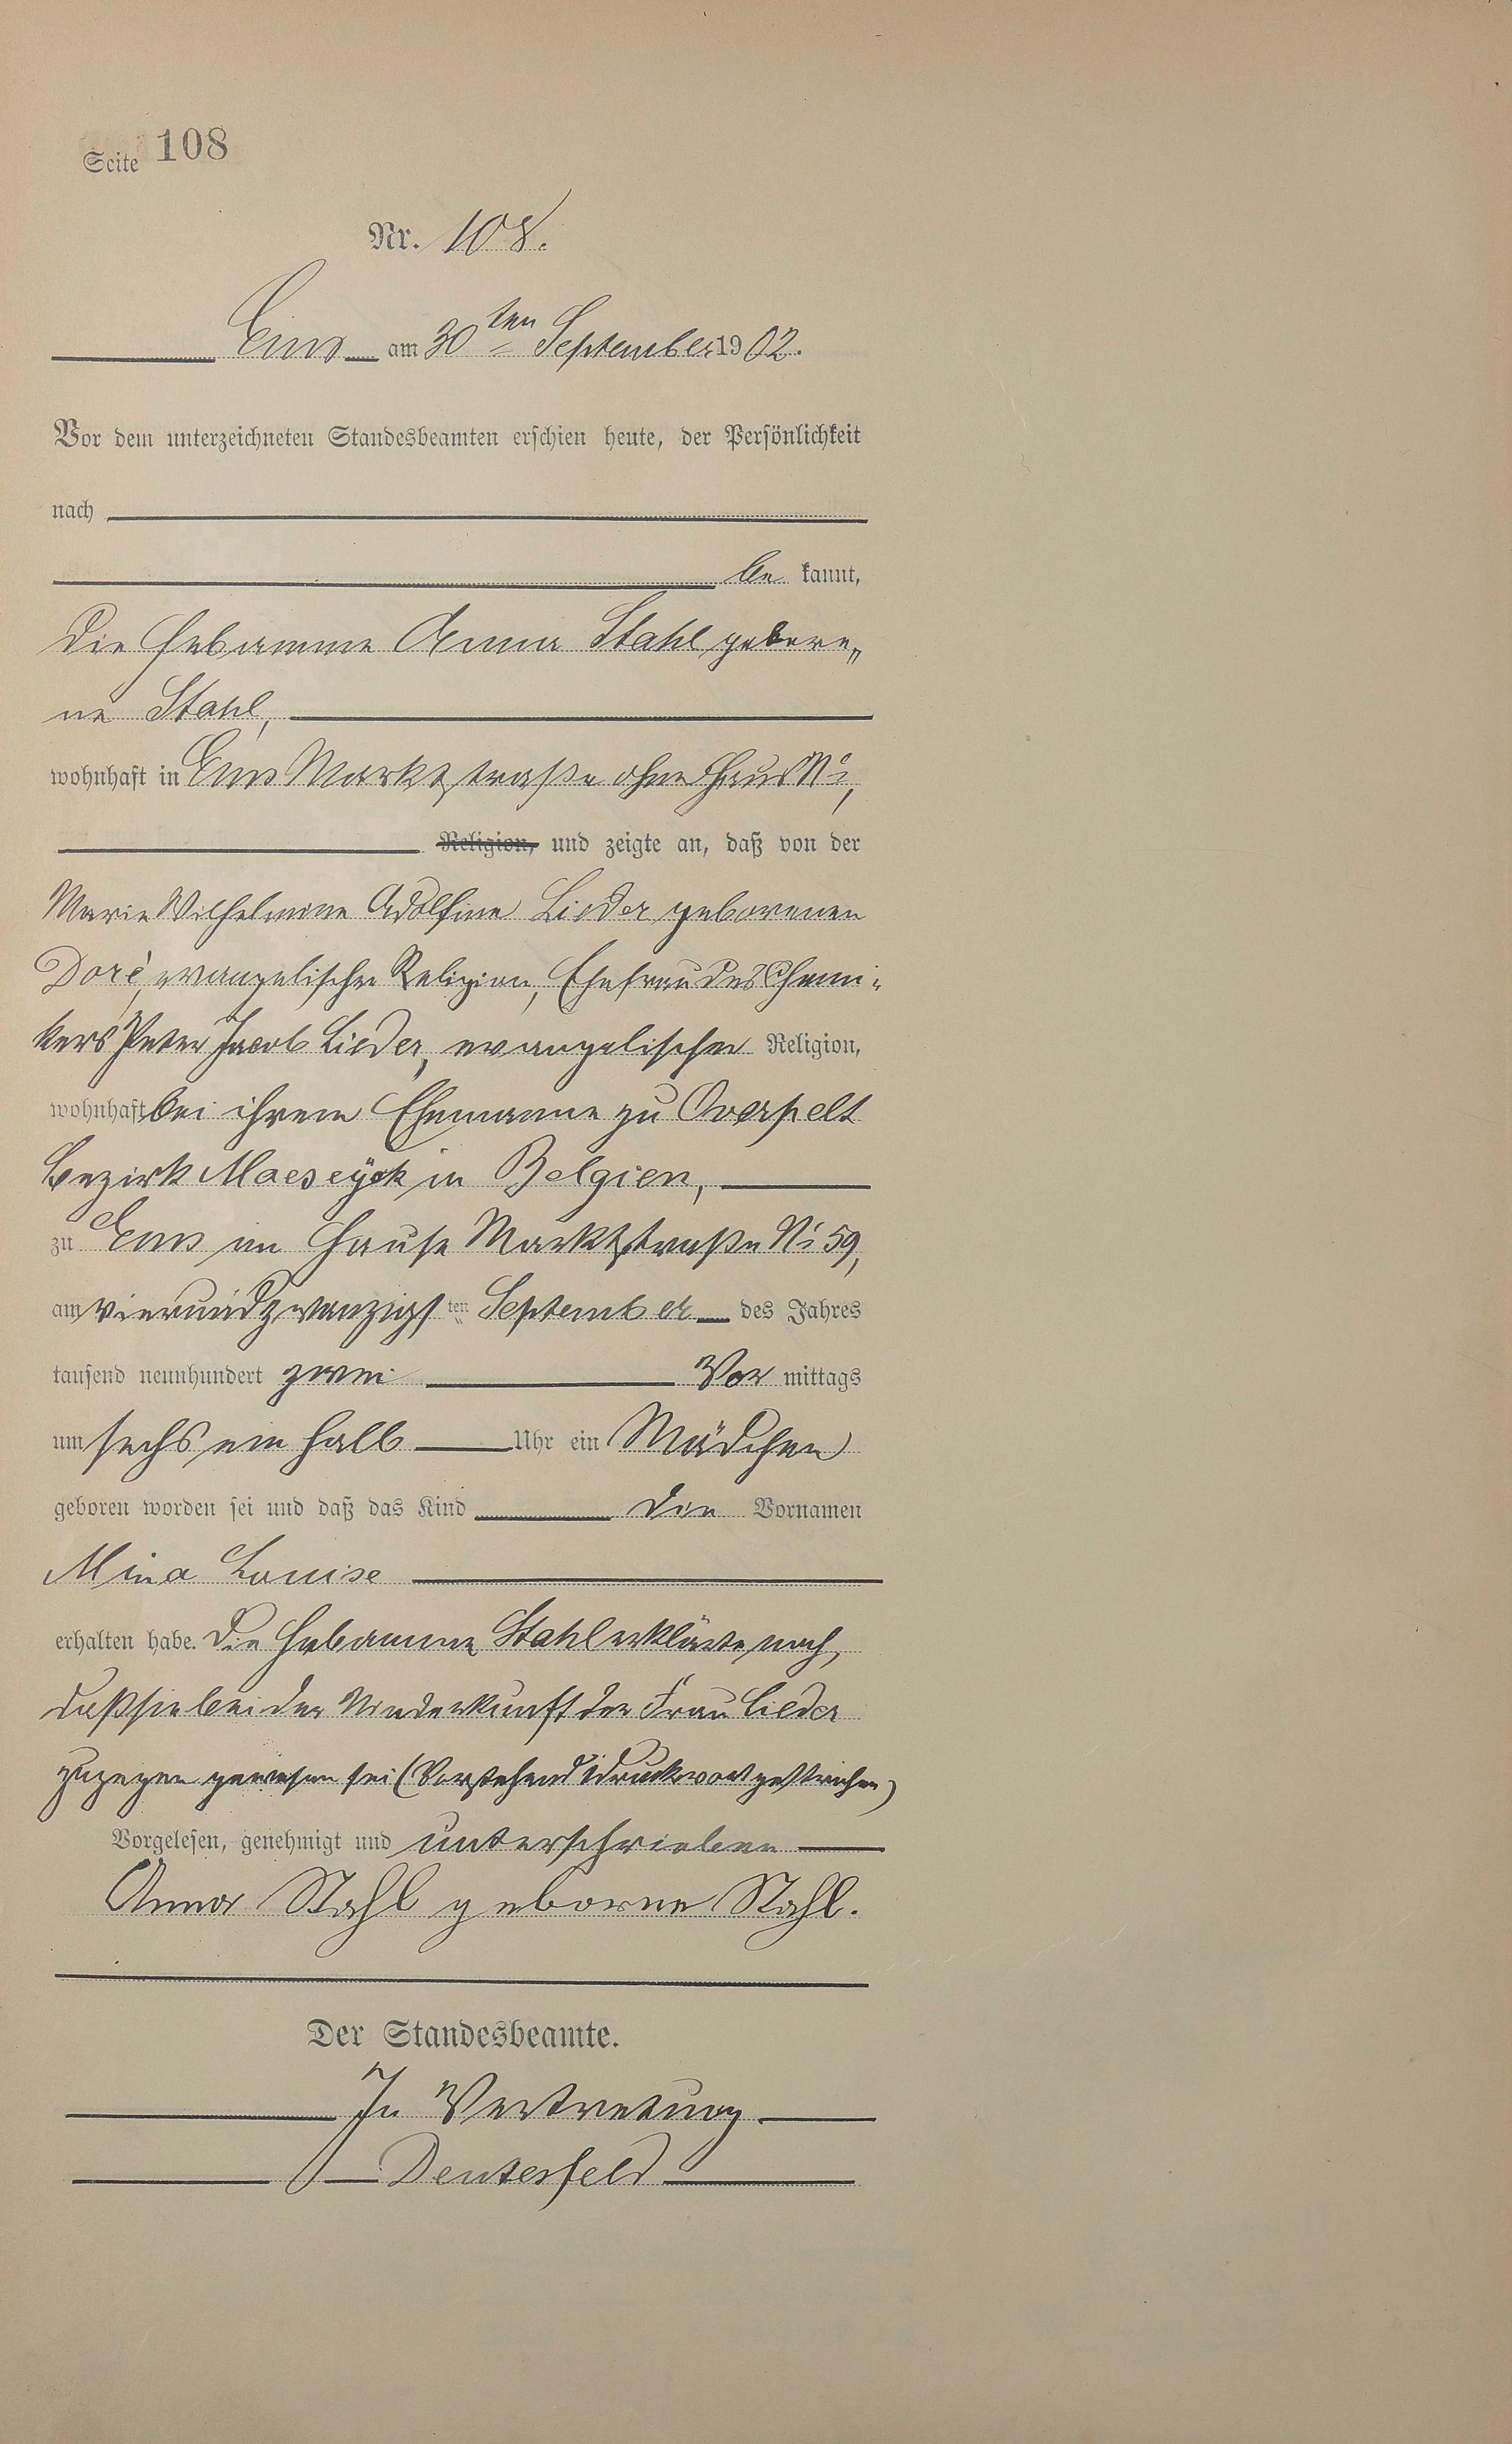 Seite 108
Nr. 108.
Ems am 30ten September 1902.
Vor dem unterzeichneten Standesbeamten erschien heute, der Persönlichkeit
nach
be kannt,
die Hebamme Anna Stahl gebore„
ne Stahl,
wohnhaft in Ems Marktstraße ohne Haus No,
Religion, und zeigte an, daß von der
Marie Wilhelmine Adolfine Lieder geborenen
Doré, evangelischer Religion, Ehefrau des Chemi-
kers Peter Jacob Lieder, evangelischer Religion,
wohnhaft bei ihrem Ehemanne zu Overpelt
Bezirk Maeseyck in Belgien,
zu Ems im Hause Marktstraße No 59,
am vierundzwanzigsten September des Jahres
tausend neunhundert zwei Vor mittags
um sechs ein halb Uhr ein Mädchen
geboren worden sei und daß das Kind die Vornamen
Mina Louise
erhalten habe. Die Hebamme Stahl erklärte noch,
daß sie bei der Niederkunft der Frau Lieder
zugegen gewesen sei (Vorstehend 1 Druckwort gestrichen)
Vorgelesen, genehmigt und unterschrieben
Anna Stahl geborne Stahl.
Der Standesbeamte.
In Vertretung
Deutesfeld